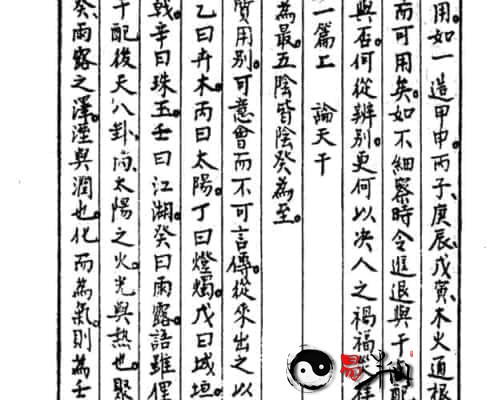 用。如一造甲申、丙子、庚辰、戊寅、木火通根
而可用矣。如不細察時令進退與干配
與否。何從辨別。更何以决人之禍福
一篇上 論天干
為最。五陰皆陰癸為至。
質用別。可意會而不可言傳。從來出之以
乙曰卉木。丙曰太陽。丁曰燈燭。戊曰城垣。
戟。辛曰珠玉。壬曰江湖。癸曰雨露。語雖俚
干配後天八卦、丙、太陽之火。光與熱也。聚
癸、雨露之澤。溼與潤也。化而為氣。則為壬
易